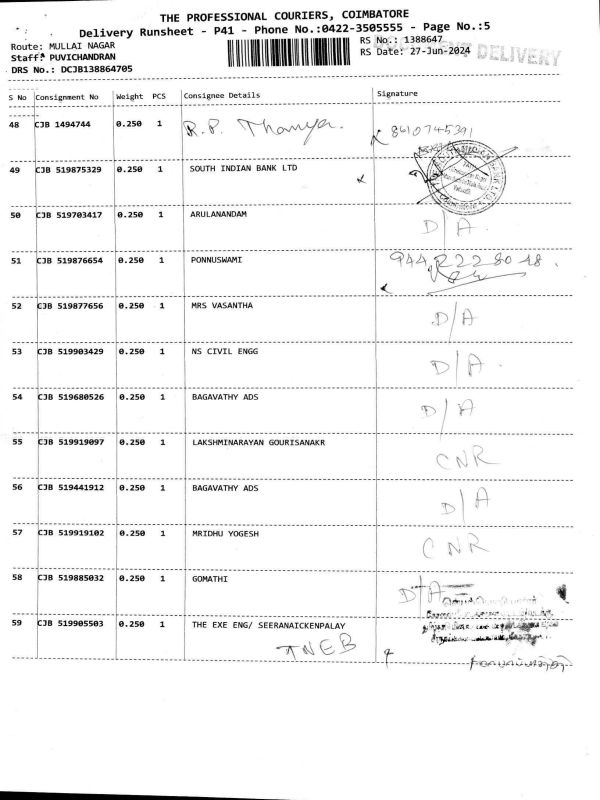 THE PROFESSIONAL COURIERS, COIMBATORE
Delivery Runsheet - P41 - Phone No.:0422-3505555 - Page No.:5
Route: MULLAI NAGAR RS No.: 1388647
Staff: PUVICHANDRAN RS Date: 27-Jun-2024 DELIVERY
DRS No.: DCJB138864705
S No Consignment No Weight PCS Consignee Details Signature
48 CJB 1494744 0.250 1 R.P. Thanya. 8610745391
49 CJB 519875329 0.250 1 SOUTH INDIAN BANK LTD
50 CJB 519703417 0.250 1 ARULANANDAM D/A.
51 CJB 519876654 0.250 1 PONNUSWAMI 944 2228048.
52 CJB 519877656 0.250 1 MRS VASANTHA D/A
53 CJB 519903429 0.250 1 NS CIVIL ENGG D/A.
54 CJB 519680526 0.250 1 BAGAVATHY ADS D/A
55 CJB 519919097 0.250 1 LAKSHMINARAYAN GOURISANAKR CNR
56 CJB 519441912 0.250 1 BAGAVATHY ADS D/A
57 CJB 519919102 0.250 1 MRIDHU YOGESH CNR
58 CJB 519885032 0.250 1 GOMATHI D/A
59 CJB 519905503 0.250 1 THE EXE ENG/ SEERANAICKENPALAY
TNEB